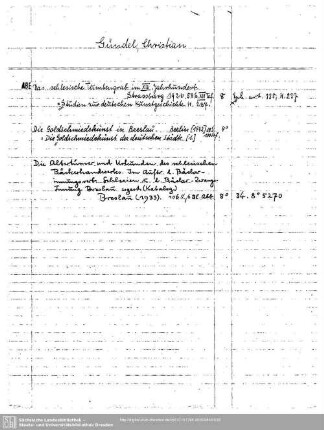 Gündel, Christian
ABE Das schlesische Tumbengrab im XIII. Jahrhundert.
Strassburg 1926. 8°
= Studien zur deutschen Kunstgeschichte. H. 237.
Die Goldschmiedekunst in Breslau. Berlin [1942] 8°
= Die Goldschmiedekunst der deutschen Städte.
Die Altertümer und Urkunden des schlesischen
Bäckerhandwerks. Im Auftr. d. Bäcker-
innungsverb. Schlesien u. d. Bäcker-Zwangs-
Innung Breslau (Katalog)
Breslau (1933). 8° 34. 8° 5270
Sächsische Landesbibliothek -
Staats- und Universitätsbibliothek Dresden